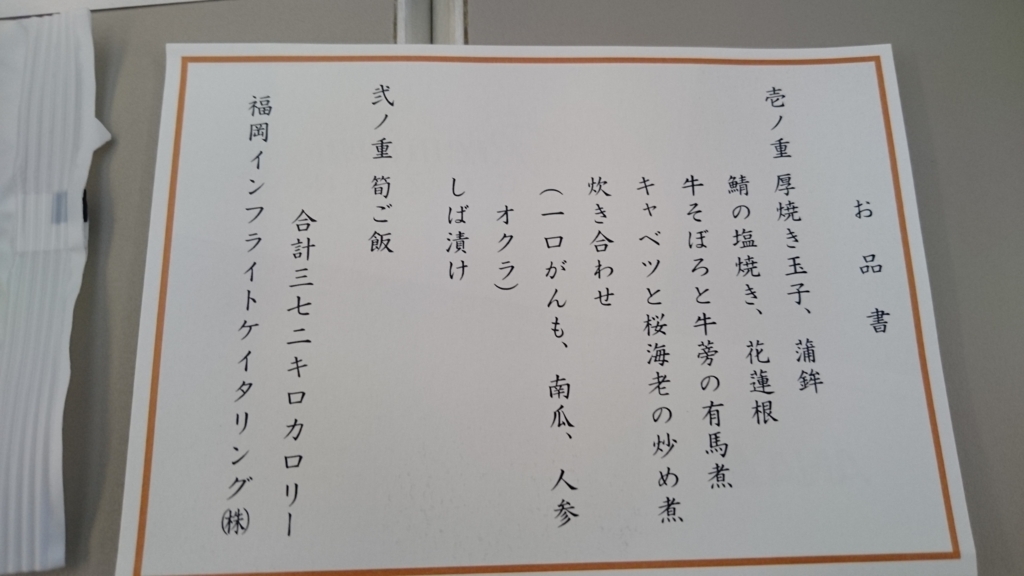 お品書
壱ノ重 厚焼き玉子、蒲鉾
鯖の塩焼き、花蓮根
牛そぼろと牛蒡の有馬煮
キャベツと桜海老の炒め煮
炊き合わせ
(一口がんも、南瓜、人参
オクラ)
しば漬け
弐ノ重 筍ご飯
合計三七二キロカロリー
福岡インフライトケイタリング㈱